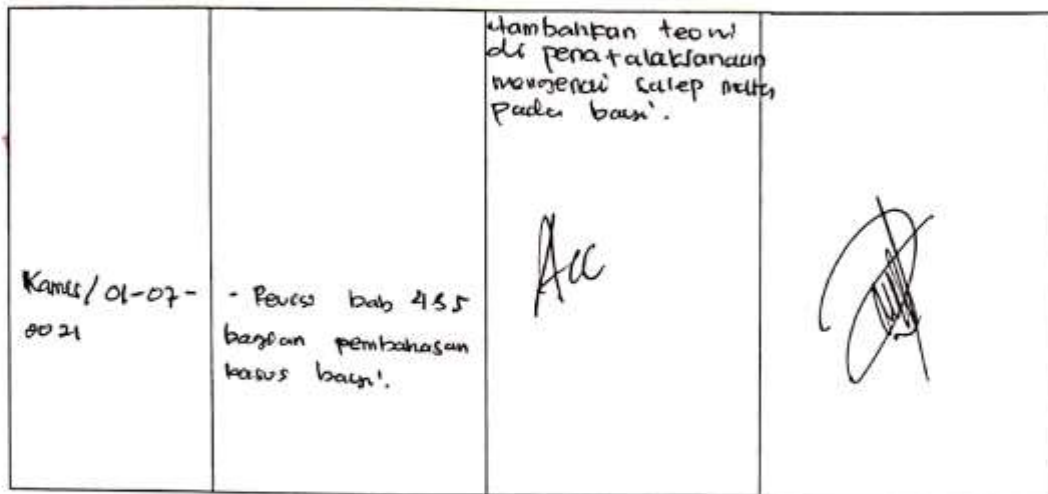 Kamis/ 01-07-
2021
- Revisi bab 4 & 5
bagian pembahasan
kasus bayi.
ditambahkan teori
di penatalaksanaan
mengenai salep mata
pada bayi.
Acc